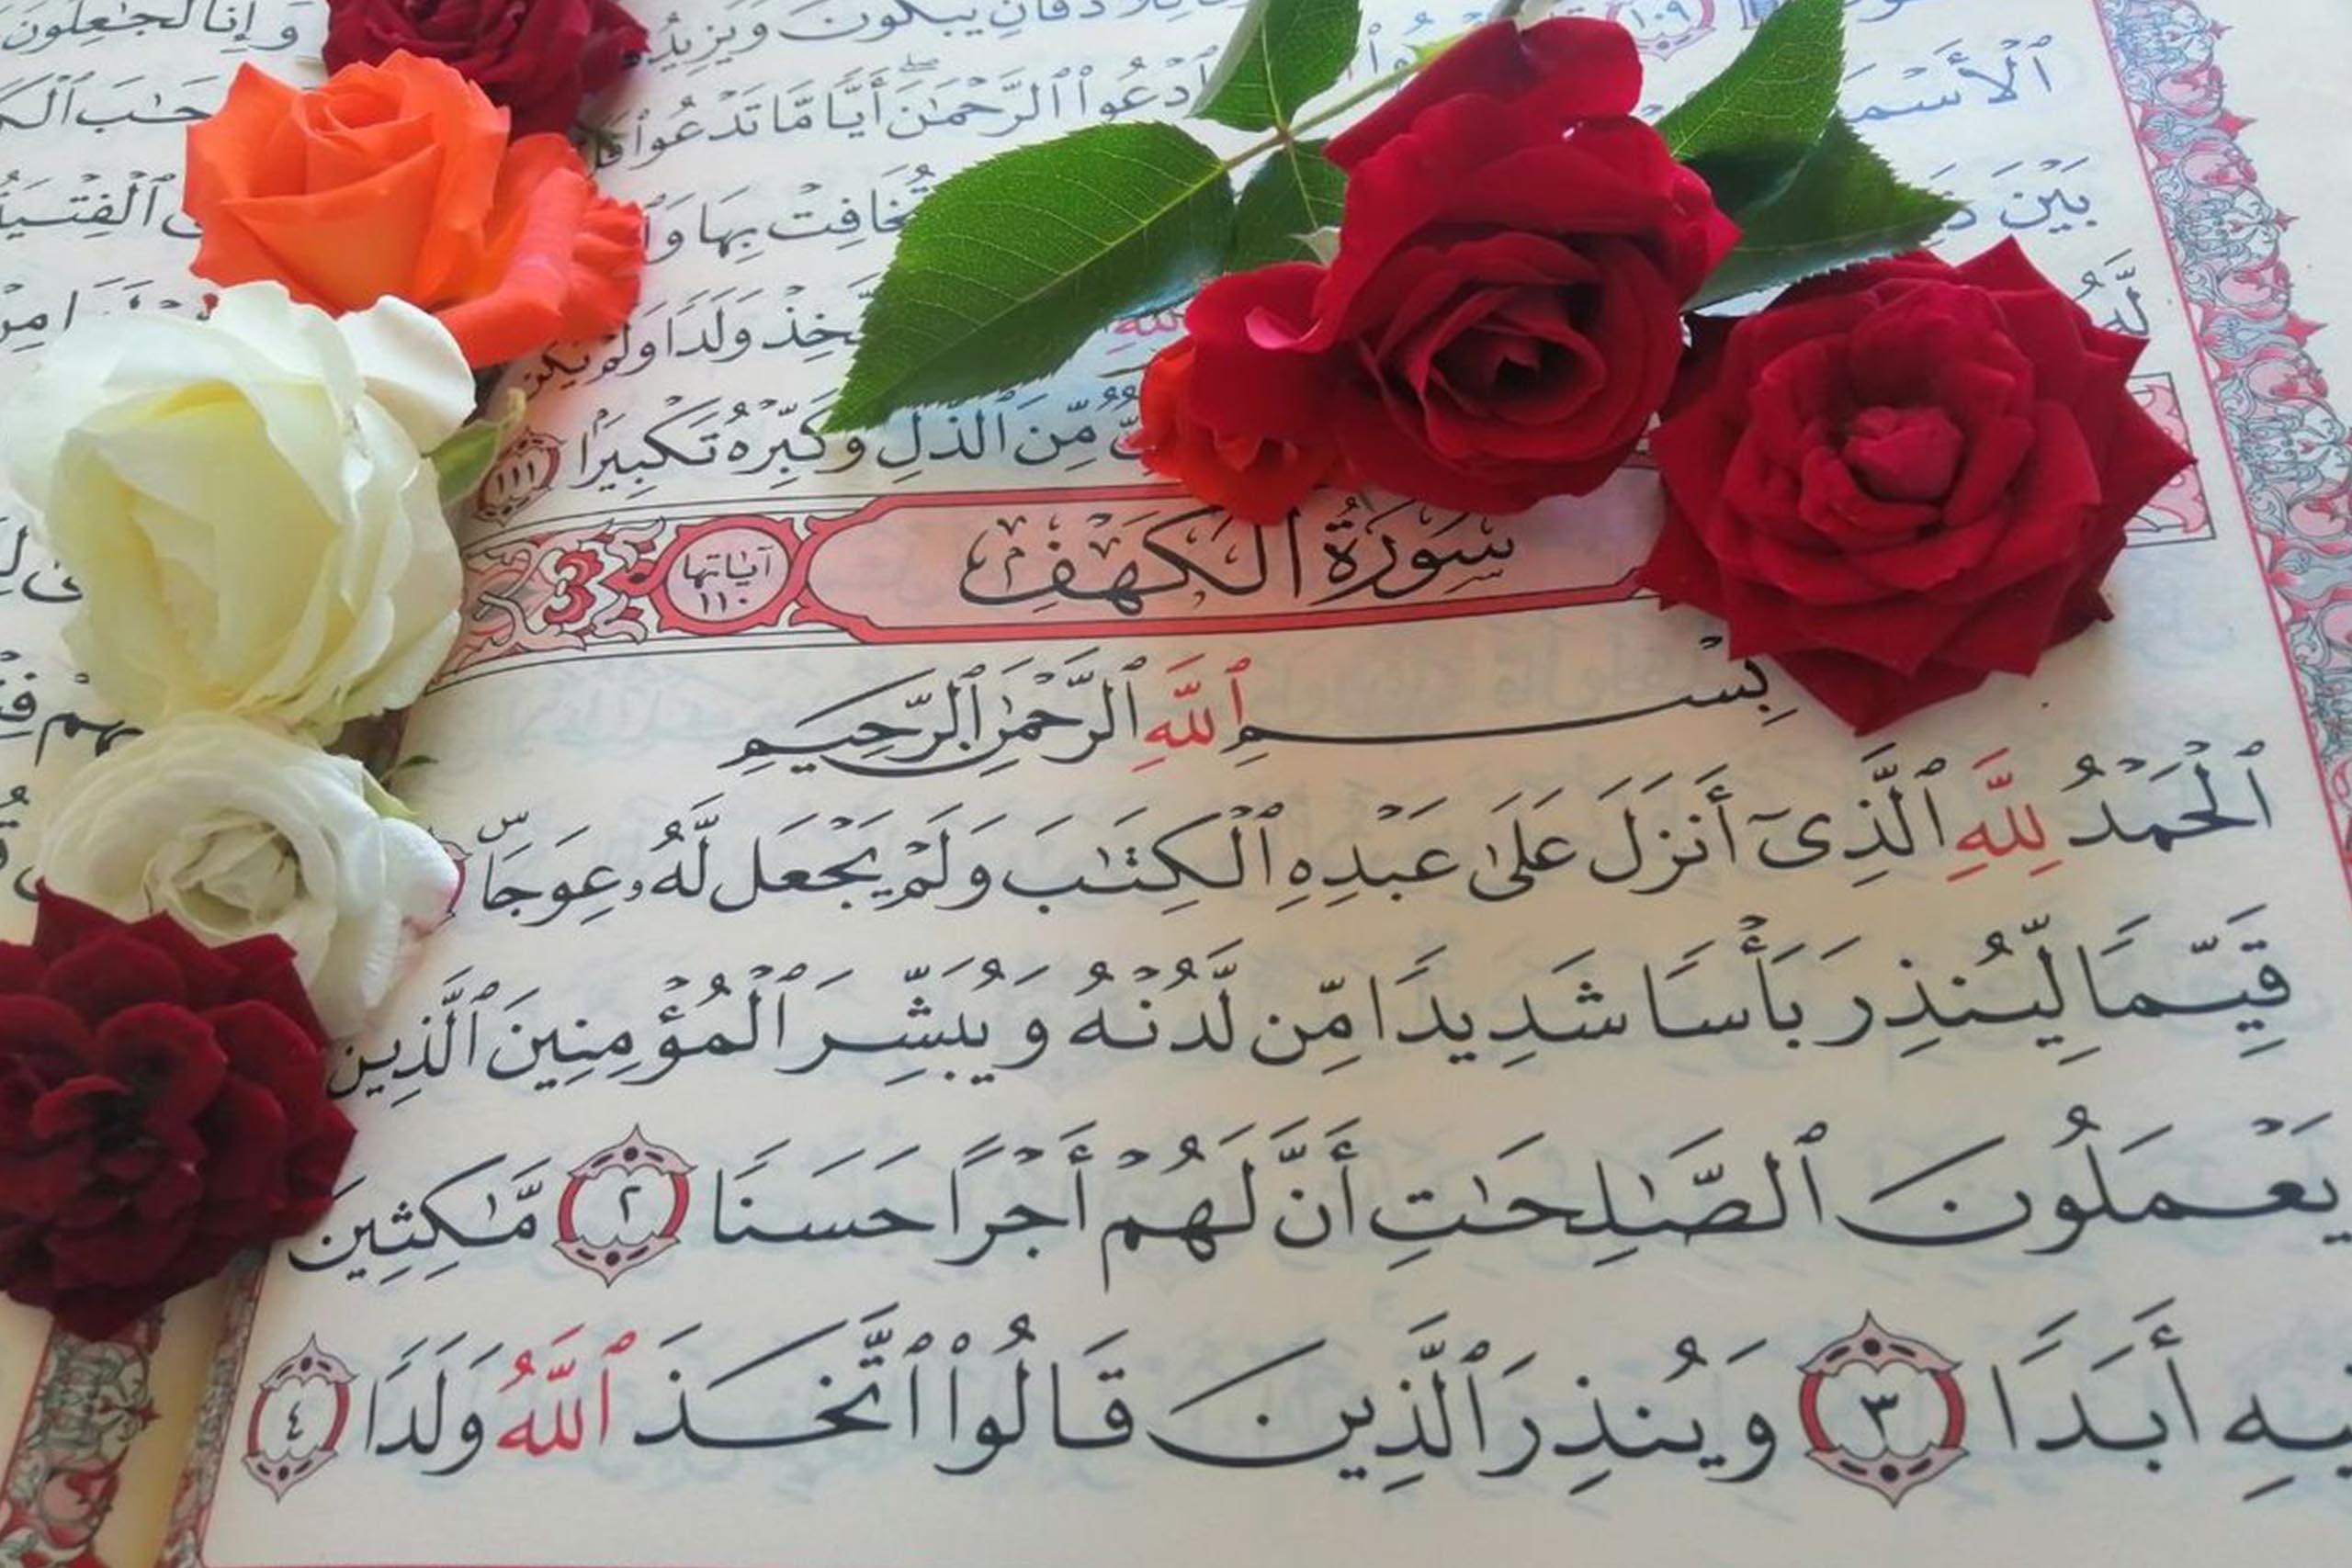 ٱلْأَسْمَ ٱدْعُوا۟ ٱلرَّحْمَٰنَ أَيًّا مَّا تَدْعُوا۟
بَيْنَ تُخَافِتْ بِهَا
يَتَّخِذْ وَلَدًا وَلَمْ يَكُن لَّهُ
مِّنَ ٱلذُّلِّ وَكَبِّرْهُ تَكْبِيرًۢا ١١١
سُورَةُ الْكَهْفِ آيَاتُهَا ١١٠
بِسْمِ ٱللَّهِ ٱلرَّحْمَٰنِ ٱلرَّحِيمِ
ٱلْحَمْدُ لِلَّهِ ٱلَّذِىٓ أَنزَلَ عَلَىٰ عَبْدِهِ ٱلْكِتَٰبَ وَلَمْ يَجْعَل لَّهُۥ عِوَجَاۜ
قَيِّمًا لِّيُنذِرَ بَأْسًا شَدِيدًا مِّن لَّدُنْهُ وَيُبَشِّرَ ٱلْمُؤْمِنِينَ ٱلَّذِينَ
يَعْمَلُونَ ٱلصَّٰلِحَٰتِ أَنَّ لَهُمْ أَجْرًا حَسَنًا ٢ مَّٰكِثِينَ
فِيهِ أَبَدًا ٣ وَيُنذِرَ ٱلَّذِينَ قَالُوا۟ ٱتَّخَذَ ٱللَّهُ وَلَدًا ٤